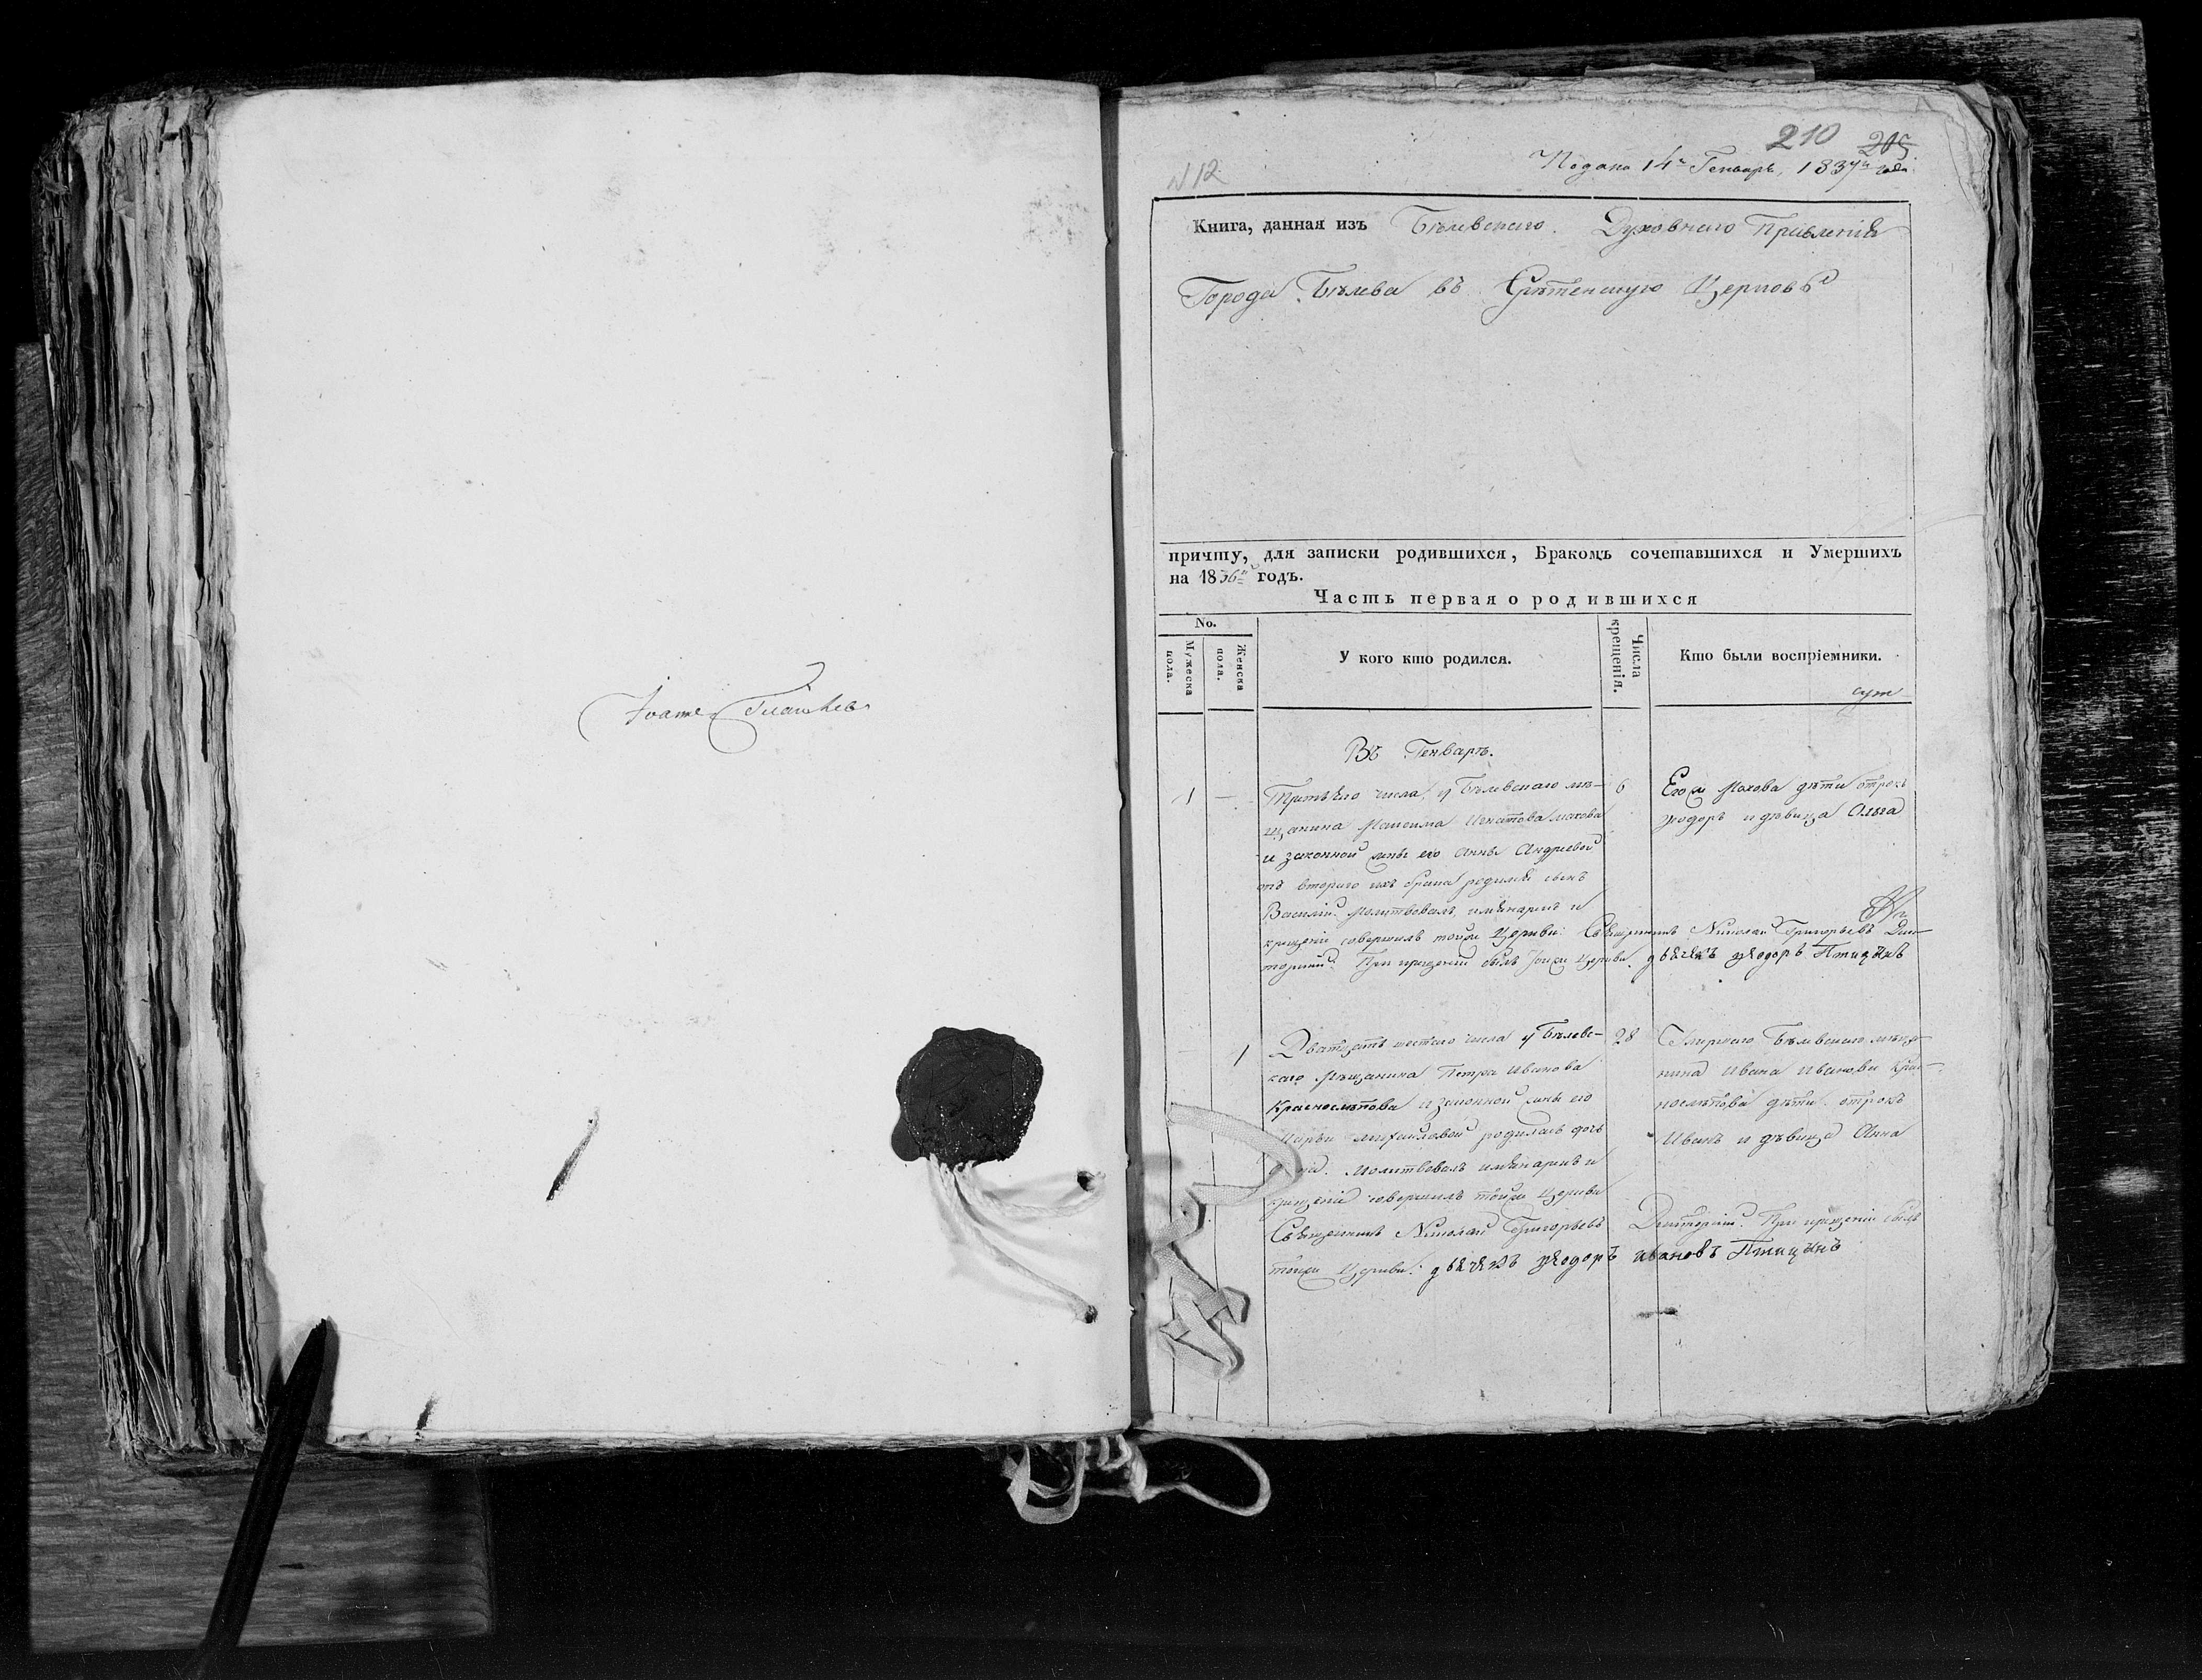 210 205
N 12
Подана 14го Генваря, 1837го года
Книга, данная изъ Бѣлевскаго Духовнаго Правленія
Города Бѣлева въ Срѣтенскую Церковь
причту, для записки родившихся, Бракомъ сочетавшихся и Умершихъ
на 1836й годъ.
Часть первая о родившихся
No.
Мужеска пола.
Женска пола.
У кого кто родился.
Числа крещенія.
Кто были воспріемники.
Въ Генварѣ.
1 — Третьяго числа у Бѣлевскаго мѣ- 6 Его Махова дѣти отрокъ
щанина Максима Игнатова Махова Ѳеодоръ и дѣвица Ольга
и законной жены его Анны Андреевой
отъ втораго ихъ брака родился сынъ
Василій. Молитвовалъ, имянарекъ и
крещеніе совершилъ тойже Церкви Священникъ Николай Григорьевъ
При крещеніи былъ тойже Церкви дьячекъ Ѳеодоръ Птицынъ
— 1 Дватцать шестаго числа у Бѣлевс- 28 Бѣлевскаго мѣща-
каго Мѣщанина Петра Иванова нина Ивана Иванова Крас-
Красносѣпова и законной жены его дѣти отрокъ
Марьи Михайловой родилась дочь Иванъ и дѣвица Анна
Молитвовалъ имянарекъ и
крещеніе совершилъ тойже Церкви
Священникъ Николай Григорьевъ При крещеніи былъ
тойже Церкви дьячекъ Ѳеодоръ Ивановъ Птицынъ